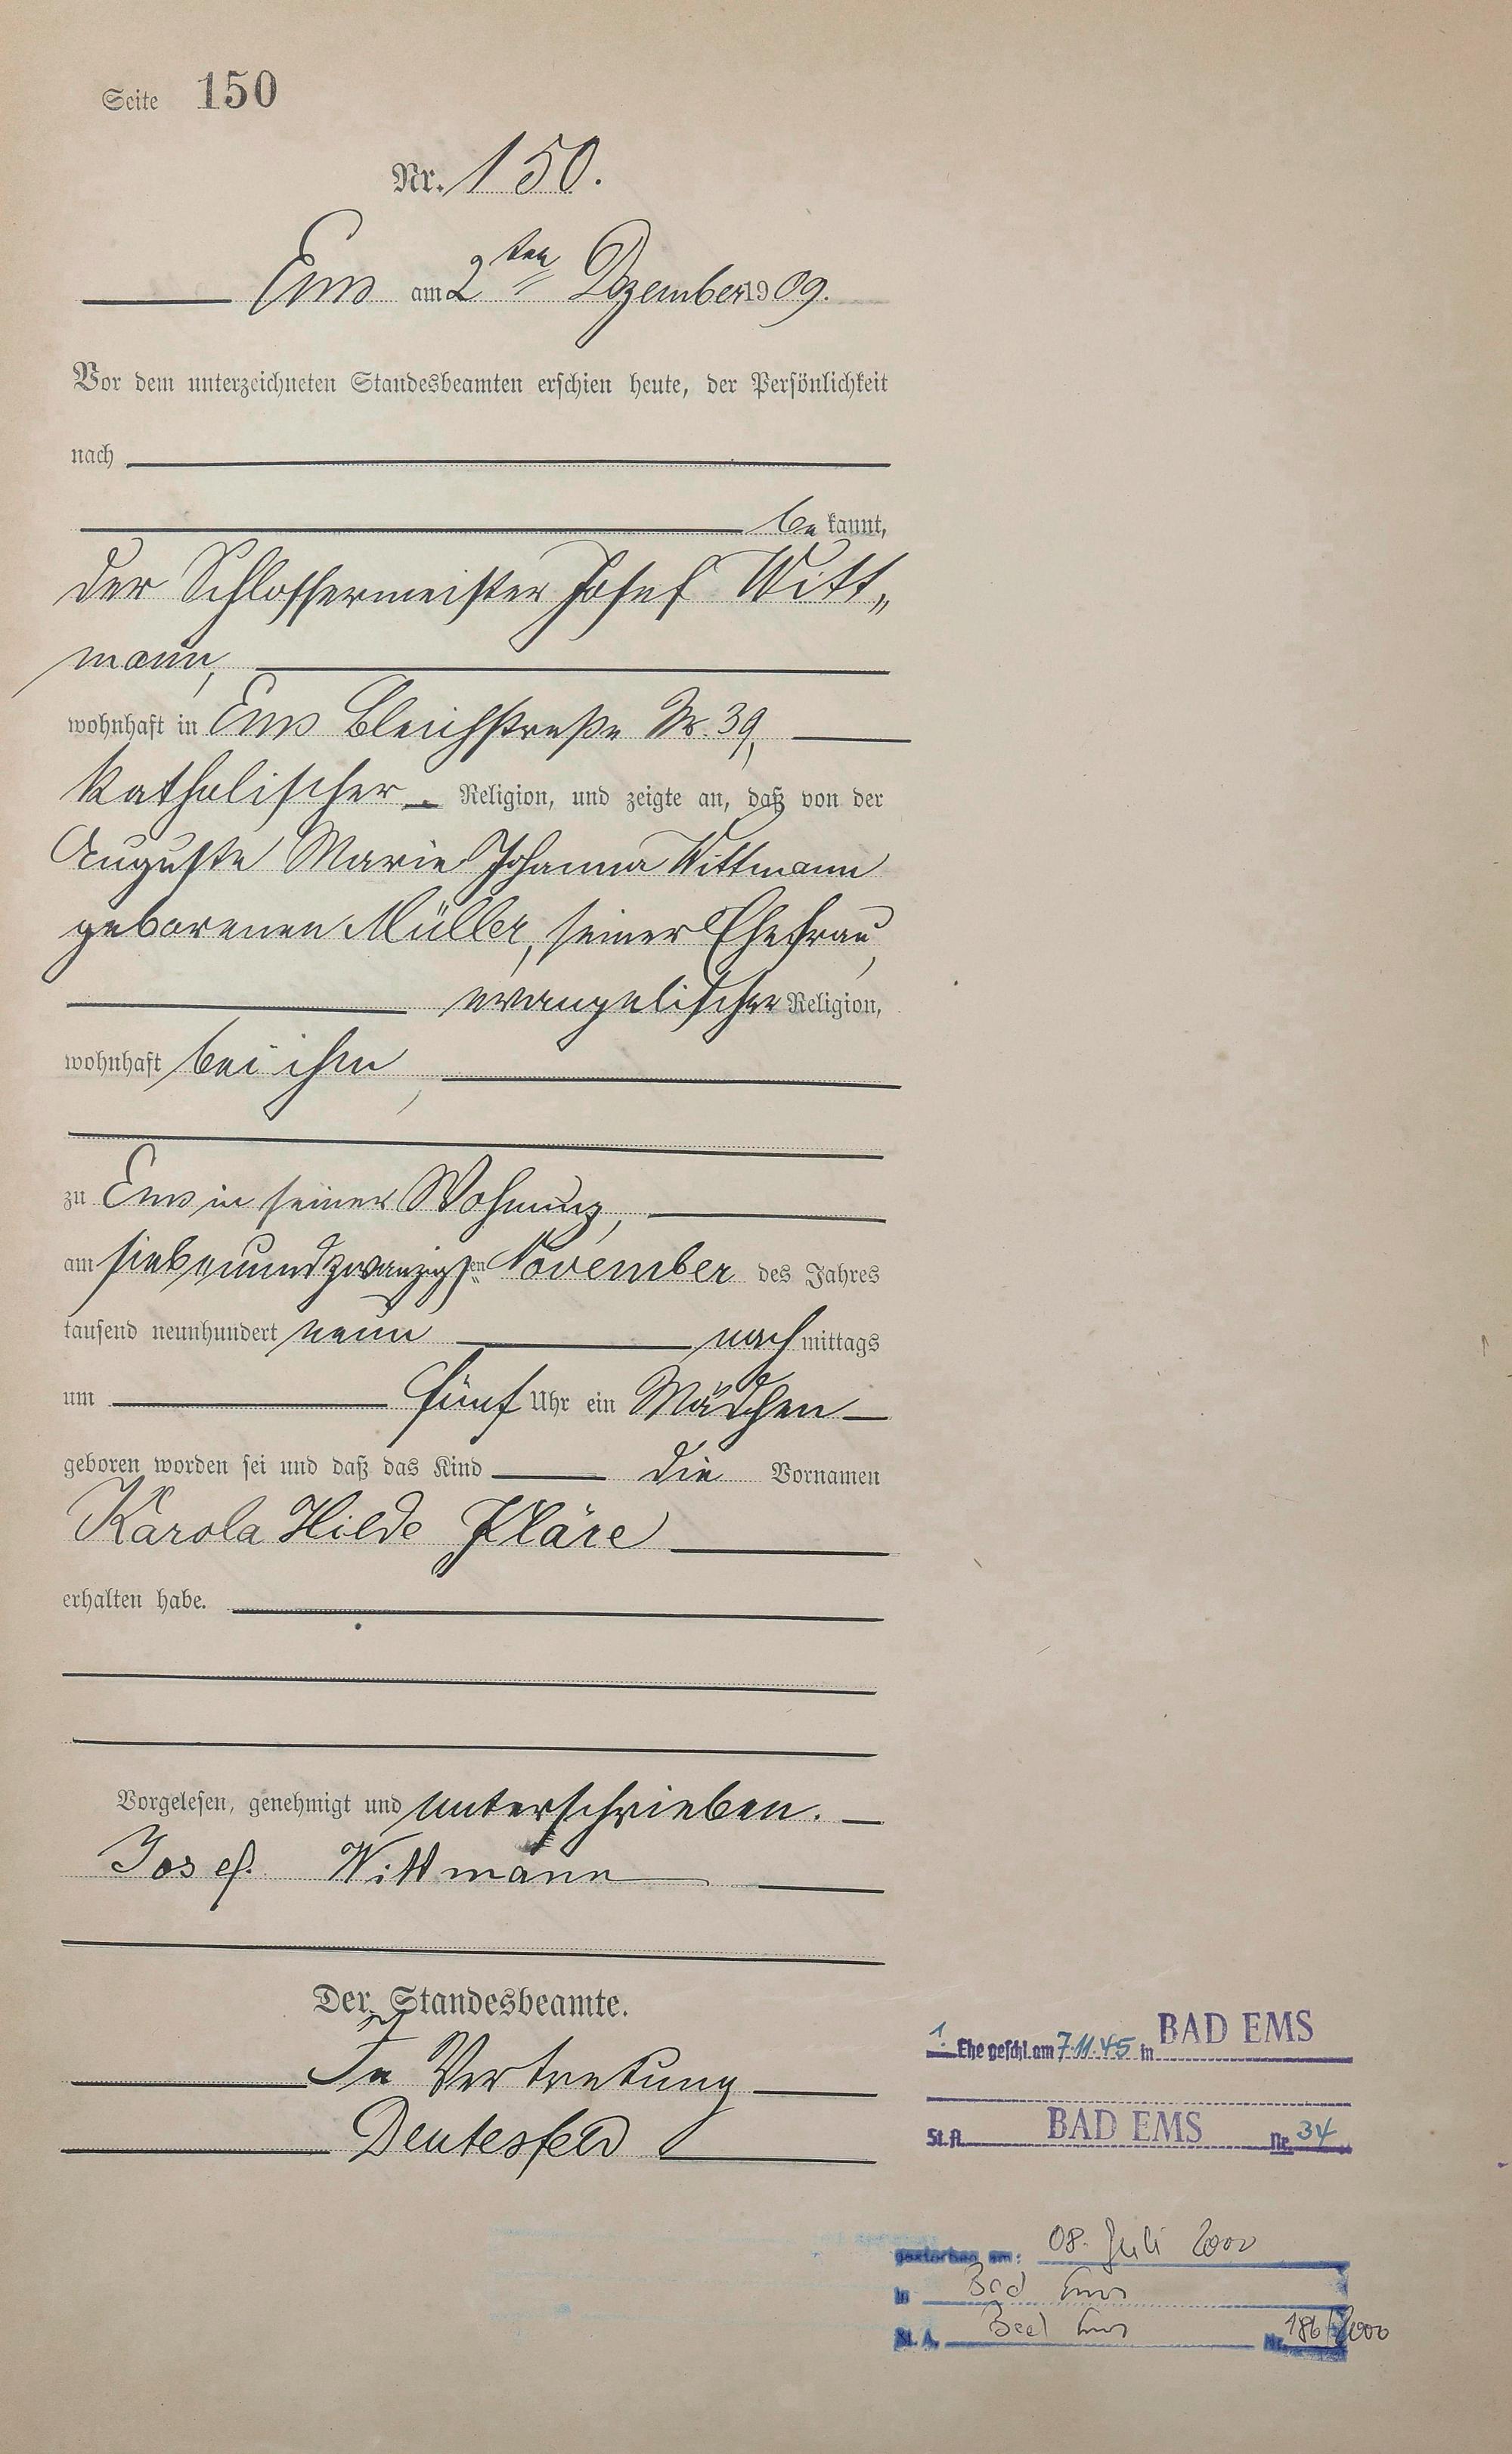 Seite 150
Nr. 150.
Ems am 2ten Dezember 1909.
Vor dem unterzeichneten Standesbeamten erschien heute, der Persönlichkeit
nach
bekannt,
der Schlossermeister Josef Witt„
mann,
wohnhaft in Ems Bleichstraße Nr. 39,
katholischer Religion, und zeigte an, daß von der
Auguste Marie Johanna Wittmann
geborenen Müller, seiner Ehefrau,
evangelischer Religion,
wohnhaft bei ihm,
zu Ems in seiner Wohnung,
am siebenundzwanzigsten November des Jahres
tausend neunhundert neun nachmittags
um fünf Uhr ein Mädchen
geboren worden sei und daß das Kind die Vornamen
Karola Hilde Kläre
erhalten habe.
Vorgelesen, genehmigt und unterschrieben.
Josef Wittmann
Der Standesbeamte.
In Vertretung
Deutesfeld
1. Ehe geschl. am 7.11.45 in BAD EMS
St.A. BAD EMS Nr. 34
gestorben am: 08. Juli 2000
in Bad Ems
St. A. Bad Ems Nr. 186/2000